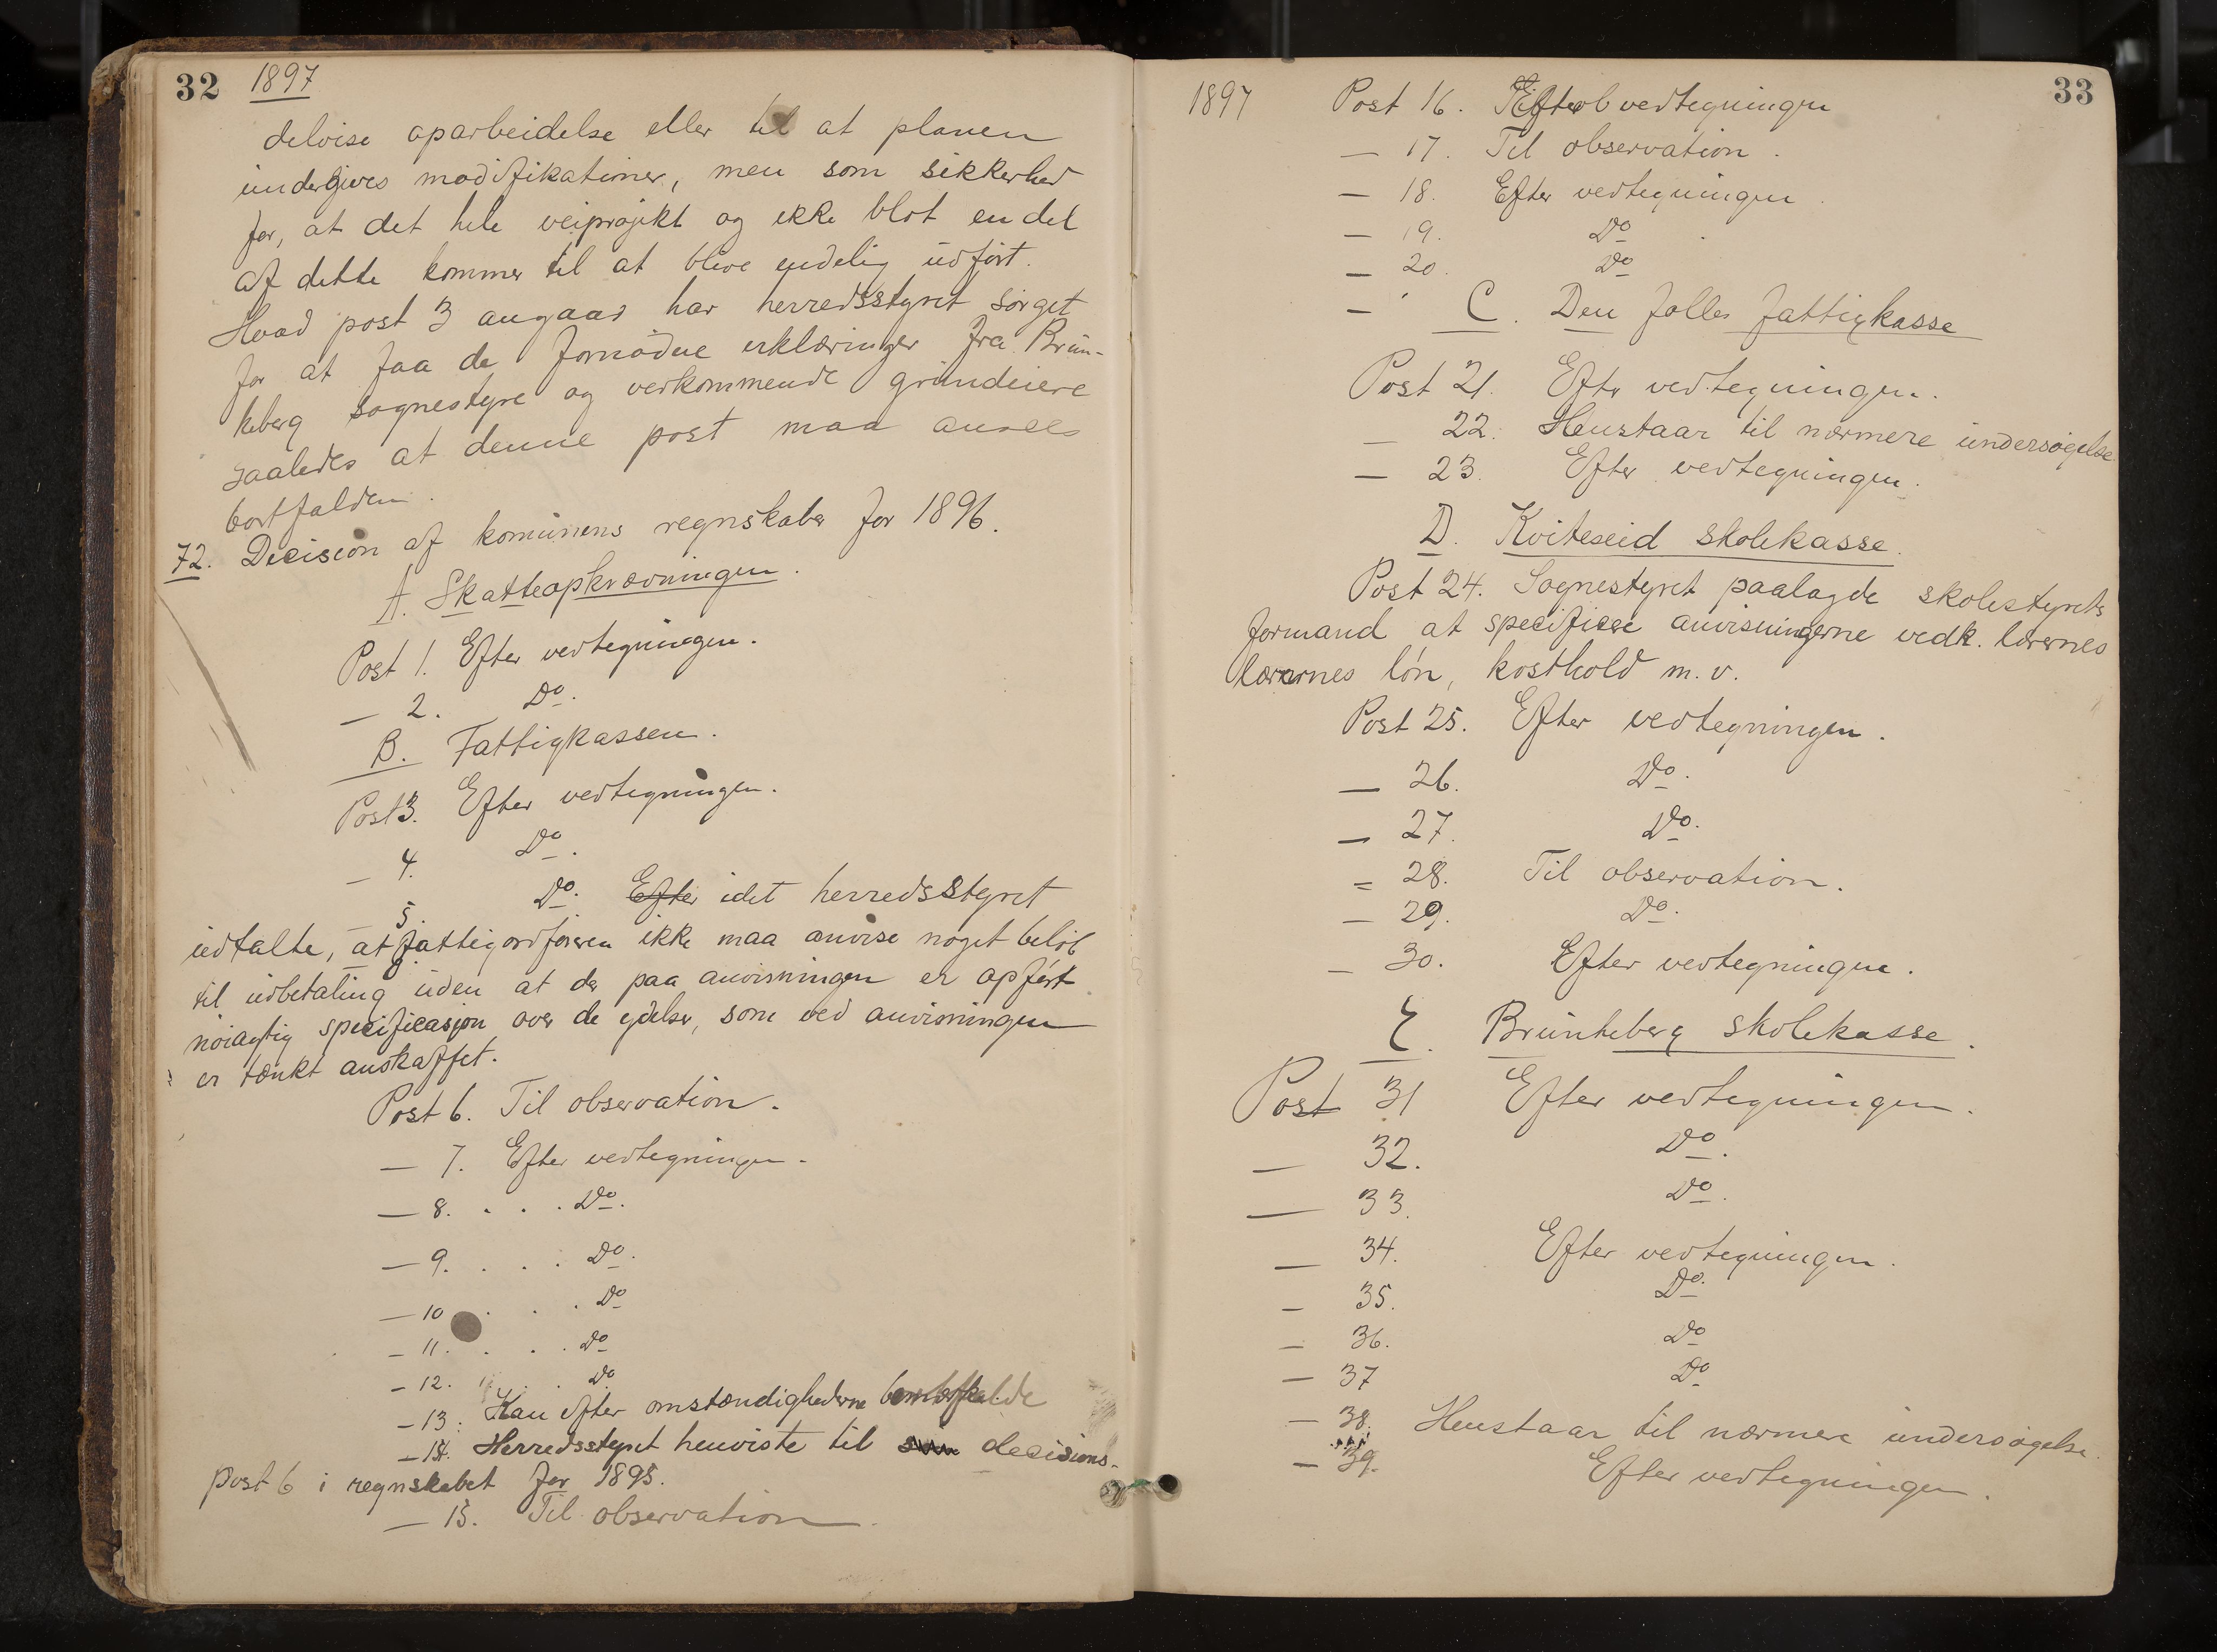 32 1897
delvise oparbeidelse eller til at planen
undergives modifikationer, men som sikkerhed
for, at det hele veiprojekt og ikke blot en del
af dette kommer til at blive endelig udført.
Hvad post 3 angaar har herredsstyret sørget
for at faa de fornødne erklæringer fra Brun-
keberg sognestyre og vedkommende grundeiere
saaledes at denne post maa ansees
bortfalden.
72. Decision af komunens regnskaber for 1896.
A. Skatteopkrævningen.
Post 1. Efter vedtegningen.
— 2. Do.
B. Fattigkassen.
Post 3. Efter vedtegningen.
— 4. Do.
— 5. Do. Efter idet herredsstyret
udtalte, at fattigordføreren ikke maa anvise noget beløb
til udbetaling uden at der paa anvisningen er opført
nøiagtig specificasjon over de ydelser, som ved anvisningen
er tænkt anskaffet.
Post 6. Til observation.
— 7. Efter vedtegningen.
— 8. . . . Do.
— 9. . . . Do.
— 10 . . . Do
— 11. . . . Do
— 12. . . Do
— 13. Kan efter omstændighederne
— 14. Herredsstyret henviste til decisions-
post 6 i regnskabet for 1895.
— 15. Til observation.
33
1897 Post 16. vedtegningen
— 17. Til observation.
— 18. Efter vedtegningen.
— 19. Do
— 20. Do
— C. Den fælles fattigkasse
Post 21. Efter vedtegningen.
— 22. Henstaar til nærmere undersøgelse
— 23. Efter vedtegningen.
D. Kviteseid skolekasse.
Post 24. Sognestyret paalagde skolestyrets
formand at specificere anvisningerne vedk. lærernes
lærernes løn, kosthold m. v.
Post 25. Efter vedtegningen.
— 26. Do.
— 27. Do.
= 28. Til observation.
— 29. Do.
— 30. Efter vedtegningen.
E. Brunkeberg skolekasse.
Post 31 Efter vedtegningen.
— 32. Do.
— 33. Do.
— 34. Efter vedtegningen.
— 35. Do.
— 36. Do
— 37 Do
— 38. Henstaar til nærmere undersøgelse.
— 39. Efter vedtegningen.